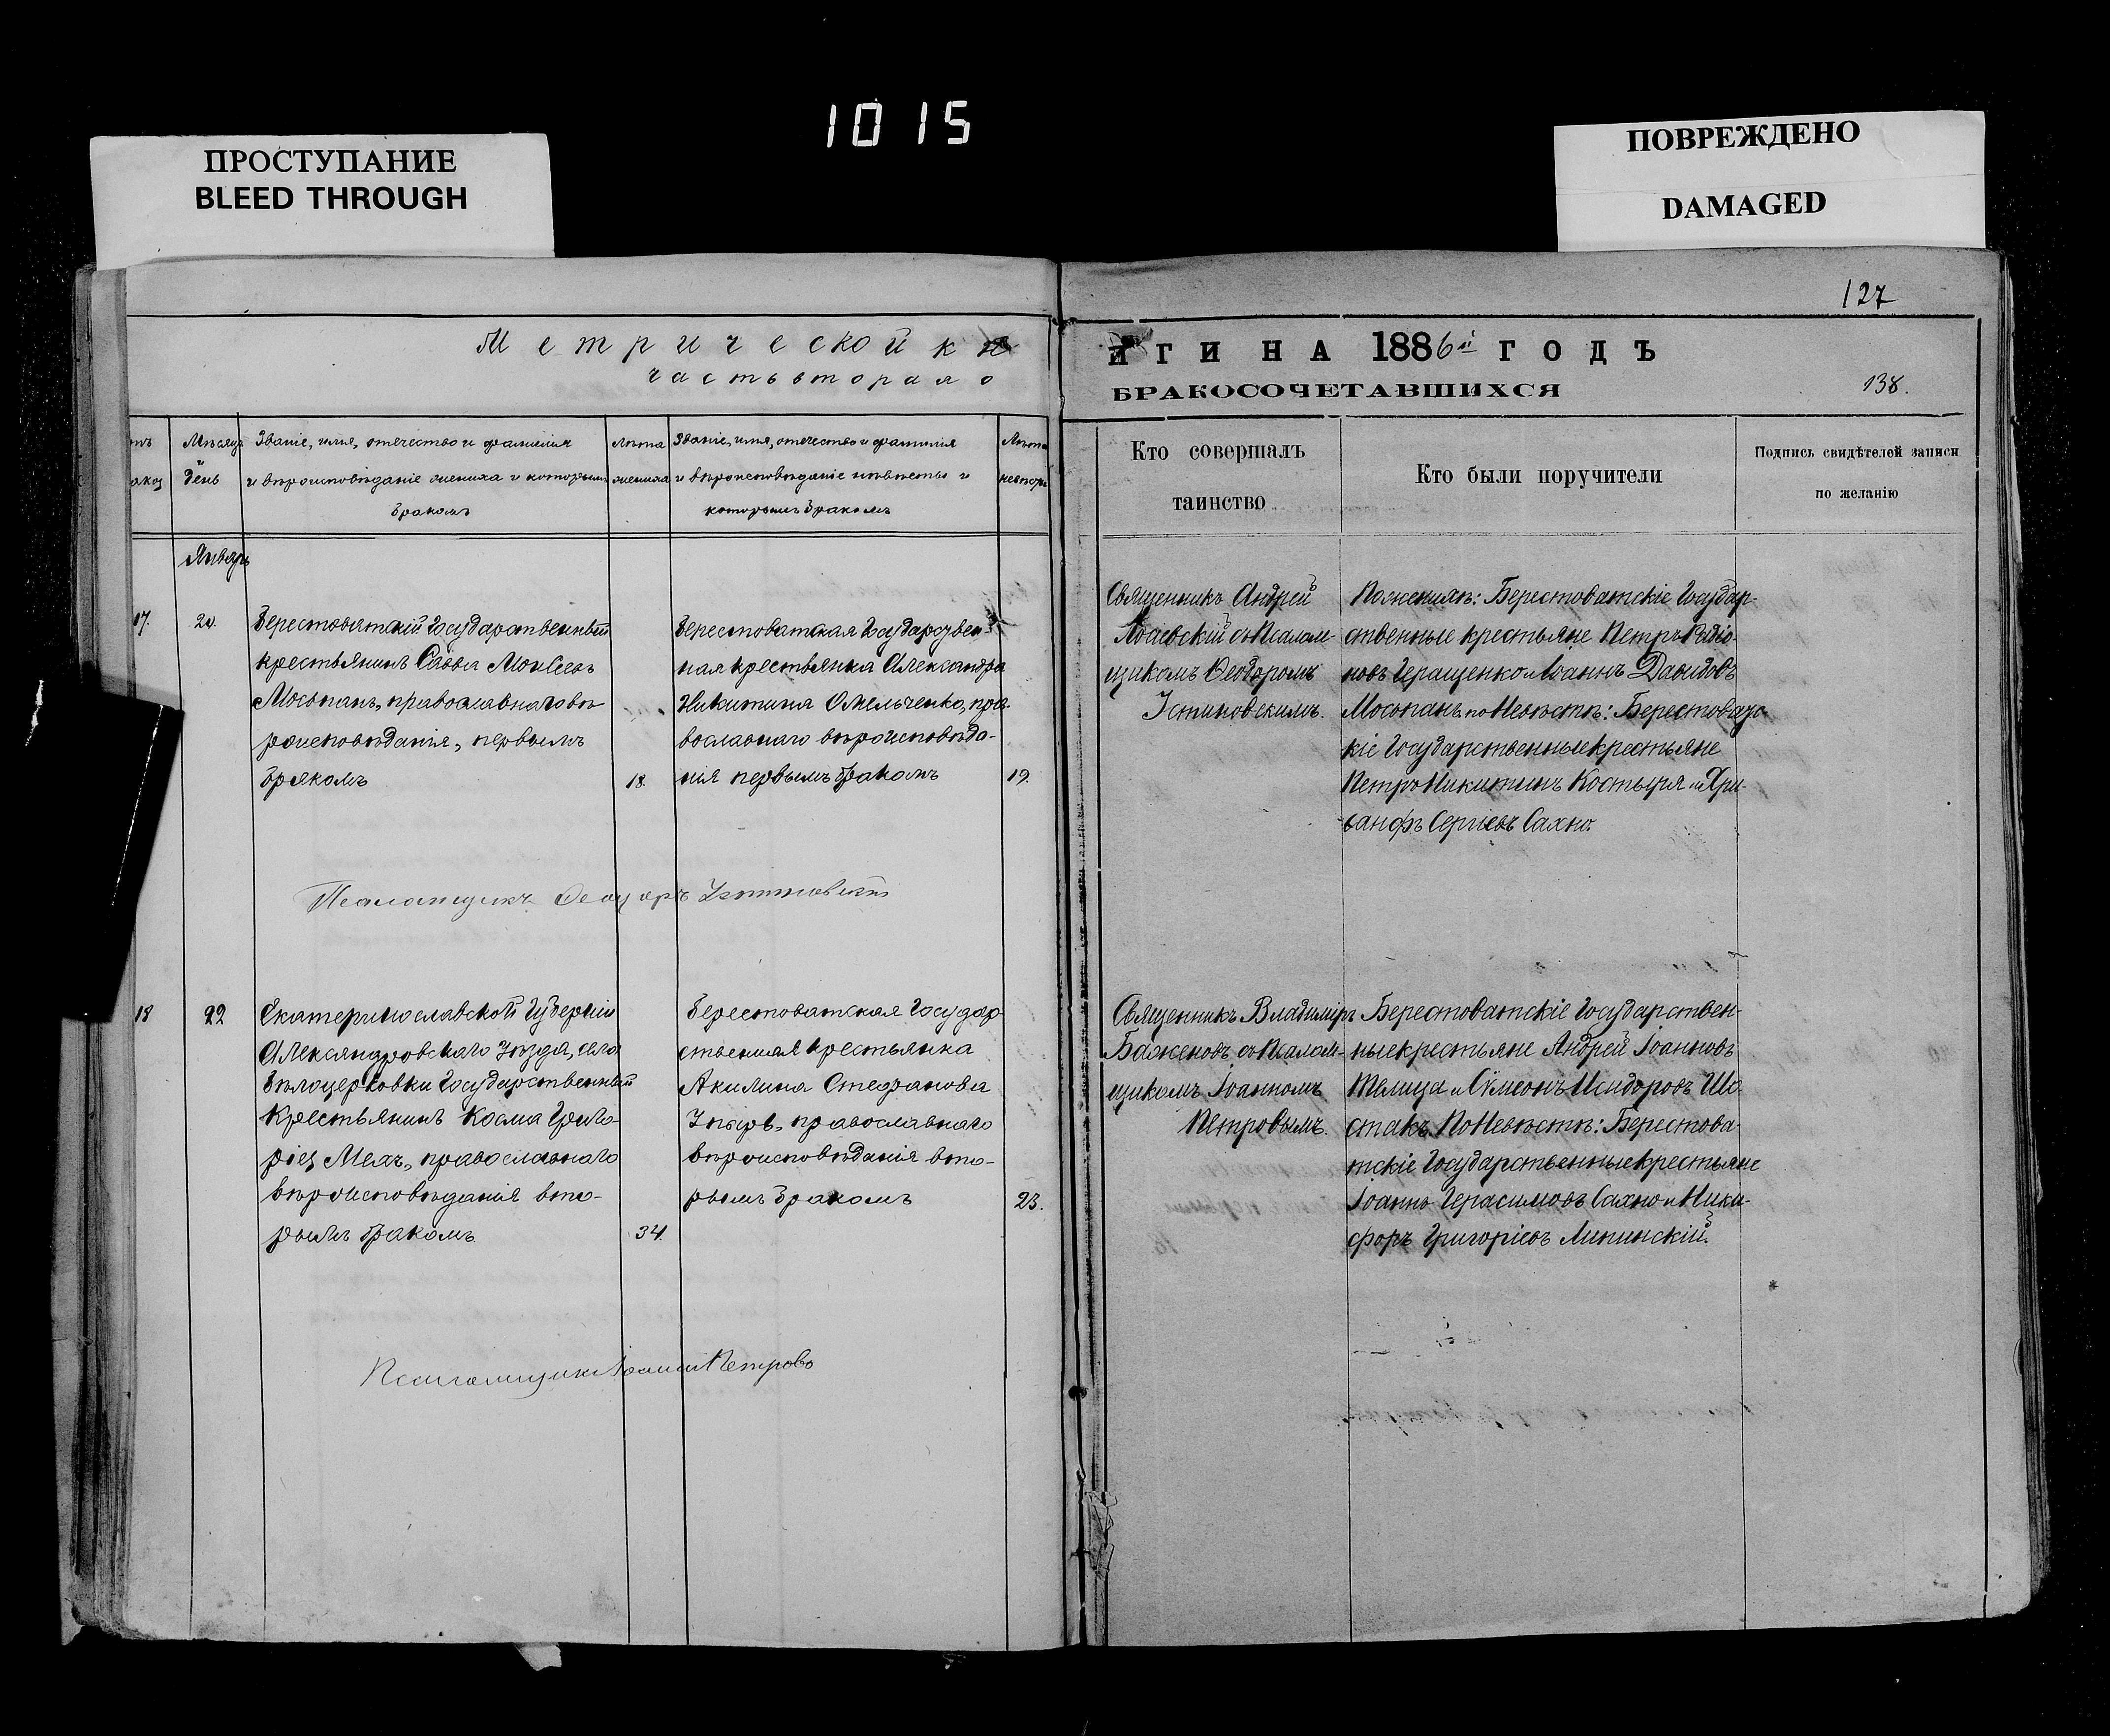 1015
ПРОСТУПАНИЕ
BLEED THROUGH
ПОВРЕЖДЕНО
DAMAGED
127
Метрической кн
часть вторая о
ИГИ НА 1886й ГОДЪ
БРАКОСОЧЕТАВШИХСЯ
138.
Мѣсяцъ
день
Званіе, имя, отечество и фамилія
и вѣроисповѣданіе жениха и которымъ
бракомъ
Лѣта
жениха
Званіе, имя, отечество и фамилія
и вѣроисповѣданіе невѣсты и
которымъ бракомъ
Лѣта
невѣсты
Кто совершалъ
таинство
Кто были поручители
Подпись свидѣтелей записи
по желанію
Январь
17.
20.
Берестоватскій Государственный
крестьянинъ Савва Моисеевъ
Мосьпанъ, православнаго вѣ-
роисповѣданія, первымъ
бракомъ
18.
Берестоватская Государствен-
ная крестьянка Александра
Никитина Омельченко, пра-
вославнаго вѣроисповѣда-
нія первымъ бракомъ
19.
Священникъ Андрей
съ Псалом-
щикомъ Ѳеодоромъ
Устиновскимъ.
По женихѣ: Берестоватскіе Государ-
ственные крестьяне Петръ Родіо-
новъ Геращенко и Іоаннъ Давидовъ
Мосьпанъ по Невѣстѣ: Берестоватс-
кіе Государственные крестьяне
Петръ Никитинъ Костыря и Хри-
санфъ Сергіевъ Сахно.
Псаломщикъ Ѳеодоръ Устиновскій
18
22
Екатеринославской Губерніи
Александровскаго Уѣзда, села
Бѣлоцерковки Государственный
Крестьянинъ Косма Григо-
ріев Мехъ, православнаго
Вѣроисповѣданія вто-
рымъ бракомъ
34.
Берестоватская Государ-
ственная крестьянка
Акилина Стефанова
православнаго
вѣроисповѣданія вто-
рымъ бракомъ
23.
Священникъ Владиміръ
Баженовъ съ Псалом-
щикомъ Іоанномъ
Петровымъ.
Берестоватскіе Государствен-
ные крестьяне Андрей Іоанновъ
Телица и Сѵмеонъ Исидоровъ Шо-
стакъ. По Невѣстѣ: Берестова-
тскіе Государственные крестьяне
Іоаннъ Герасимовъ Сахно и Ники-
форъ Григоріевъ Липинскій.
Псаломщикъ Іоаннъ Петровъ